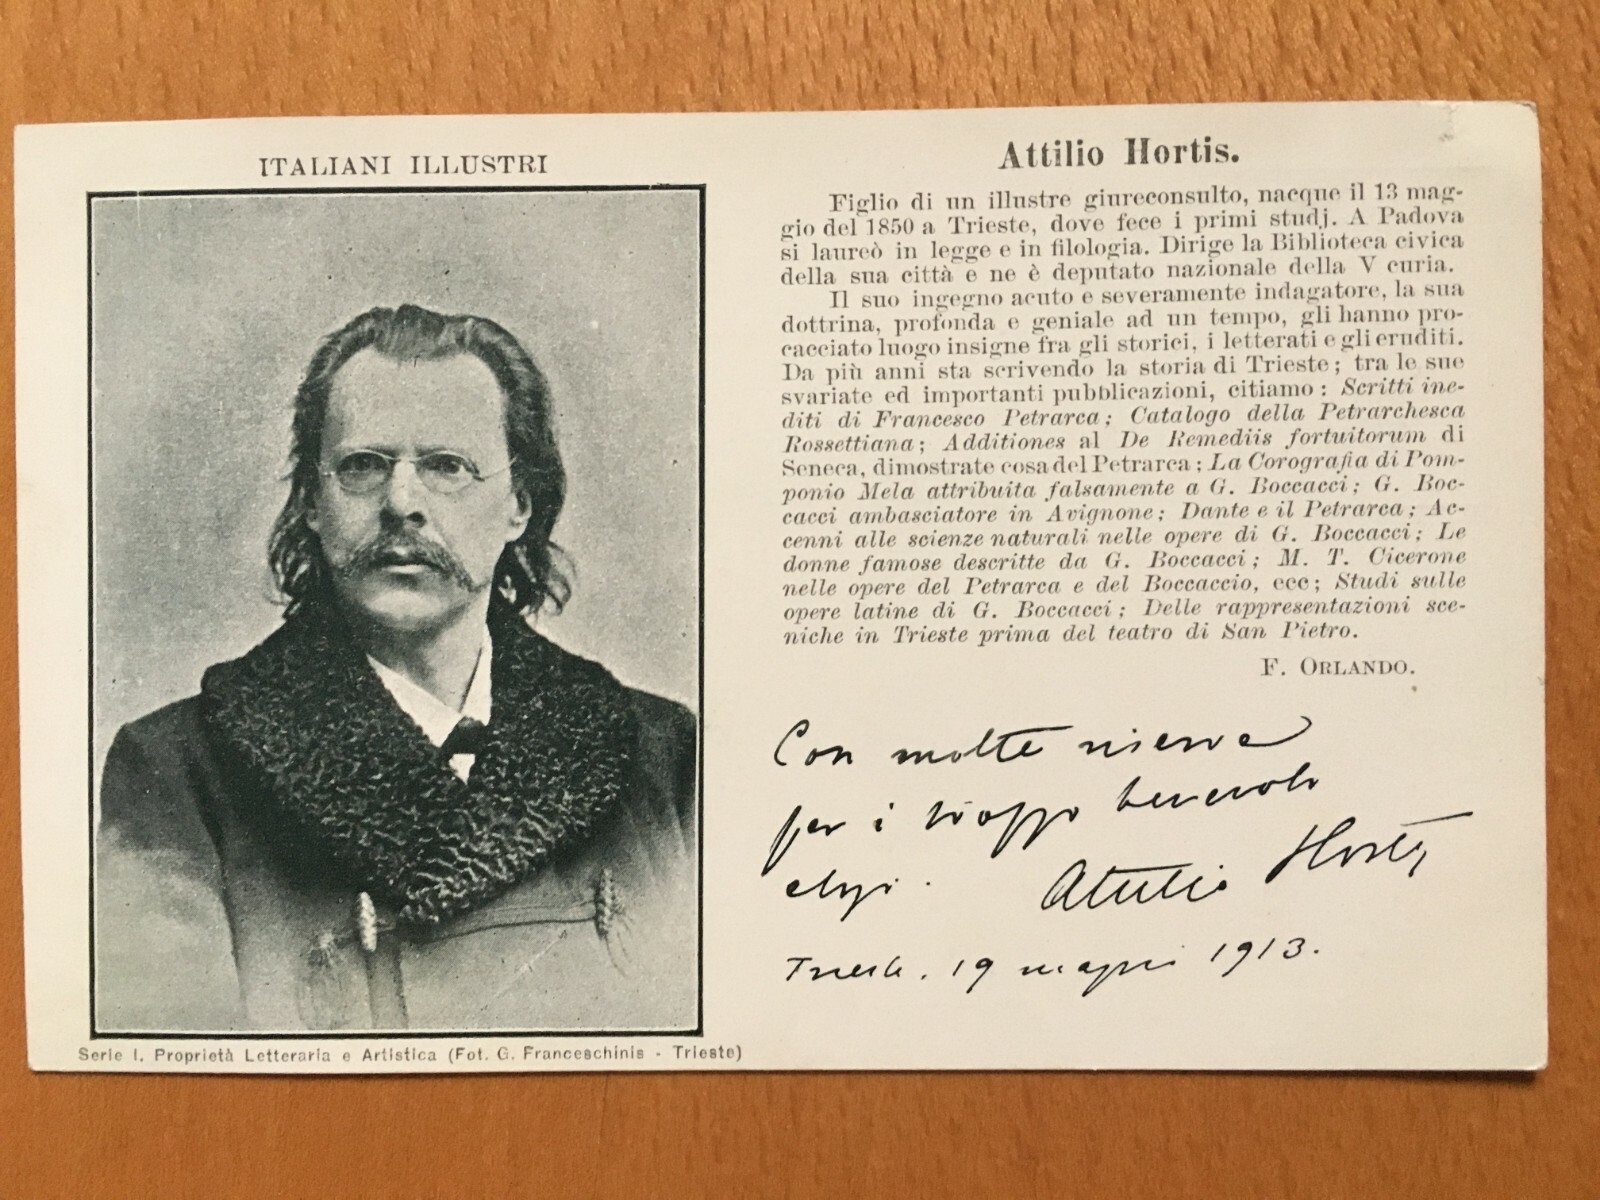 ITALIANI ILLUSTRI
Serie I. Proprietà Letteraria e Artistica (Fot. G. Franceschinis - Trieste)
Attilio Hortis.
Figlio di un illustre giureconsulto, nacque il 13 mag-
gio del 1850 a Trieste, dove fece i primi studj. A Padova
si laureò in legge e in filologia. Dirige la Biblioteca civica
della sua città e ne è deputato nazionale della V curia.
Il suo ingegno acuto e severamente indagatore, la sua
dottrina, profonda e geniale ad un tempo, gli hanno pro-
cacciato luogo insigne fra gli storici, i letterati e gli eruditi.
Da più anni sta scrivendo la storia di Trieste; tra le sue
svariate ed importanti pubblicazioni, citiamo: Scritti ine-
diti di Francesco Petrarca; Catalogo della Petrarchesca
Rossettiana; Additiones al De Remediis fortuitorum di
Seneca, dimostrate cosa del Petrarca; La Corografia di Pom-
ponio Mela attribuita falsamente a G. Boccacci; G. Boc-
cacci ambasciatore in Avignone; Dante e il Petrarca; Ac-
cenni alle scienze naturali nelle opere di G. Boccacci; Le
donne famose descritte da G. Boccacci; M. T. Cicerone
nelle opere del Petrarca e del Boccaccio, ecc; Studi sulle
opere latine di G. Boccacci; Delle rappresentazioni sce-
niche in Trieste prima del teatro di San Pietro.
F. ORLANDO.
Con molte riserve
per i troppo benevoli
elogi. Attilio Hortis
Trieste. 19 maggio 1913.